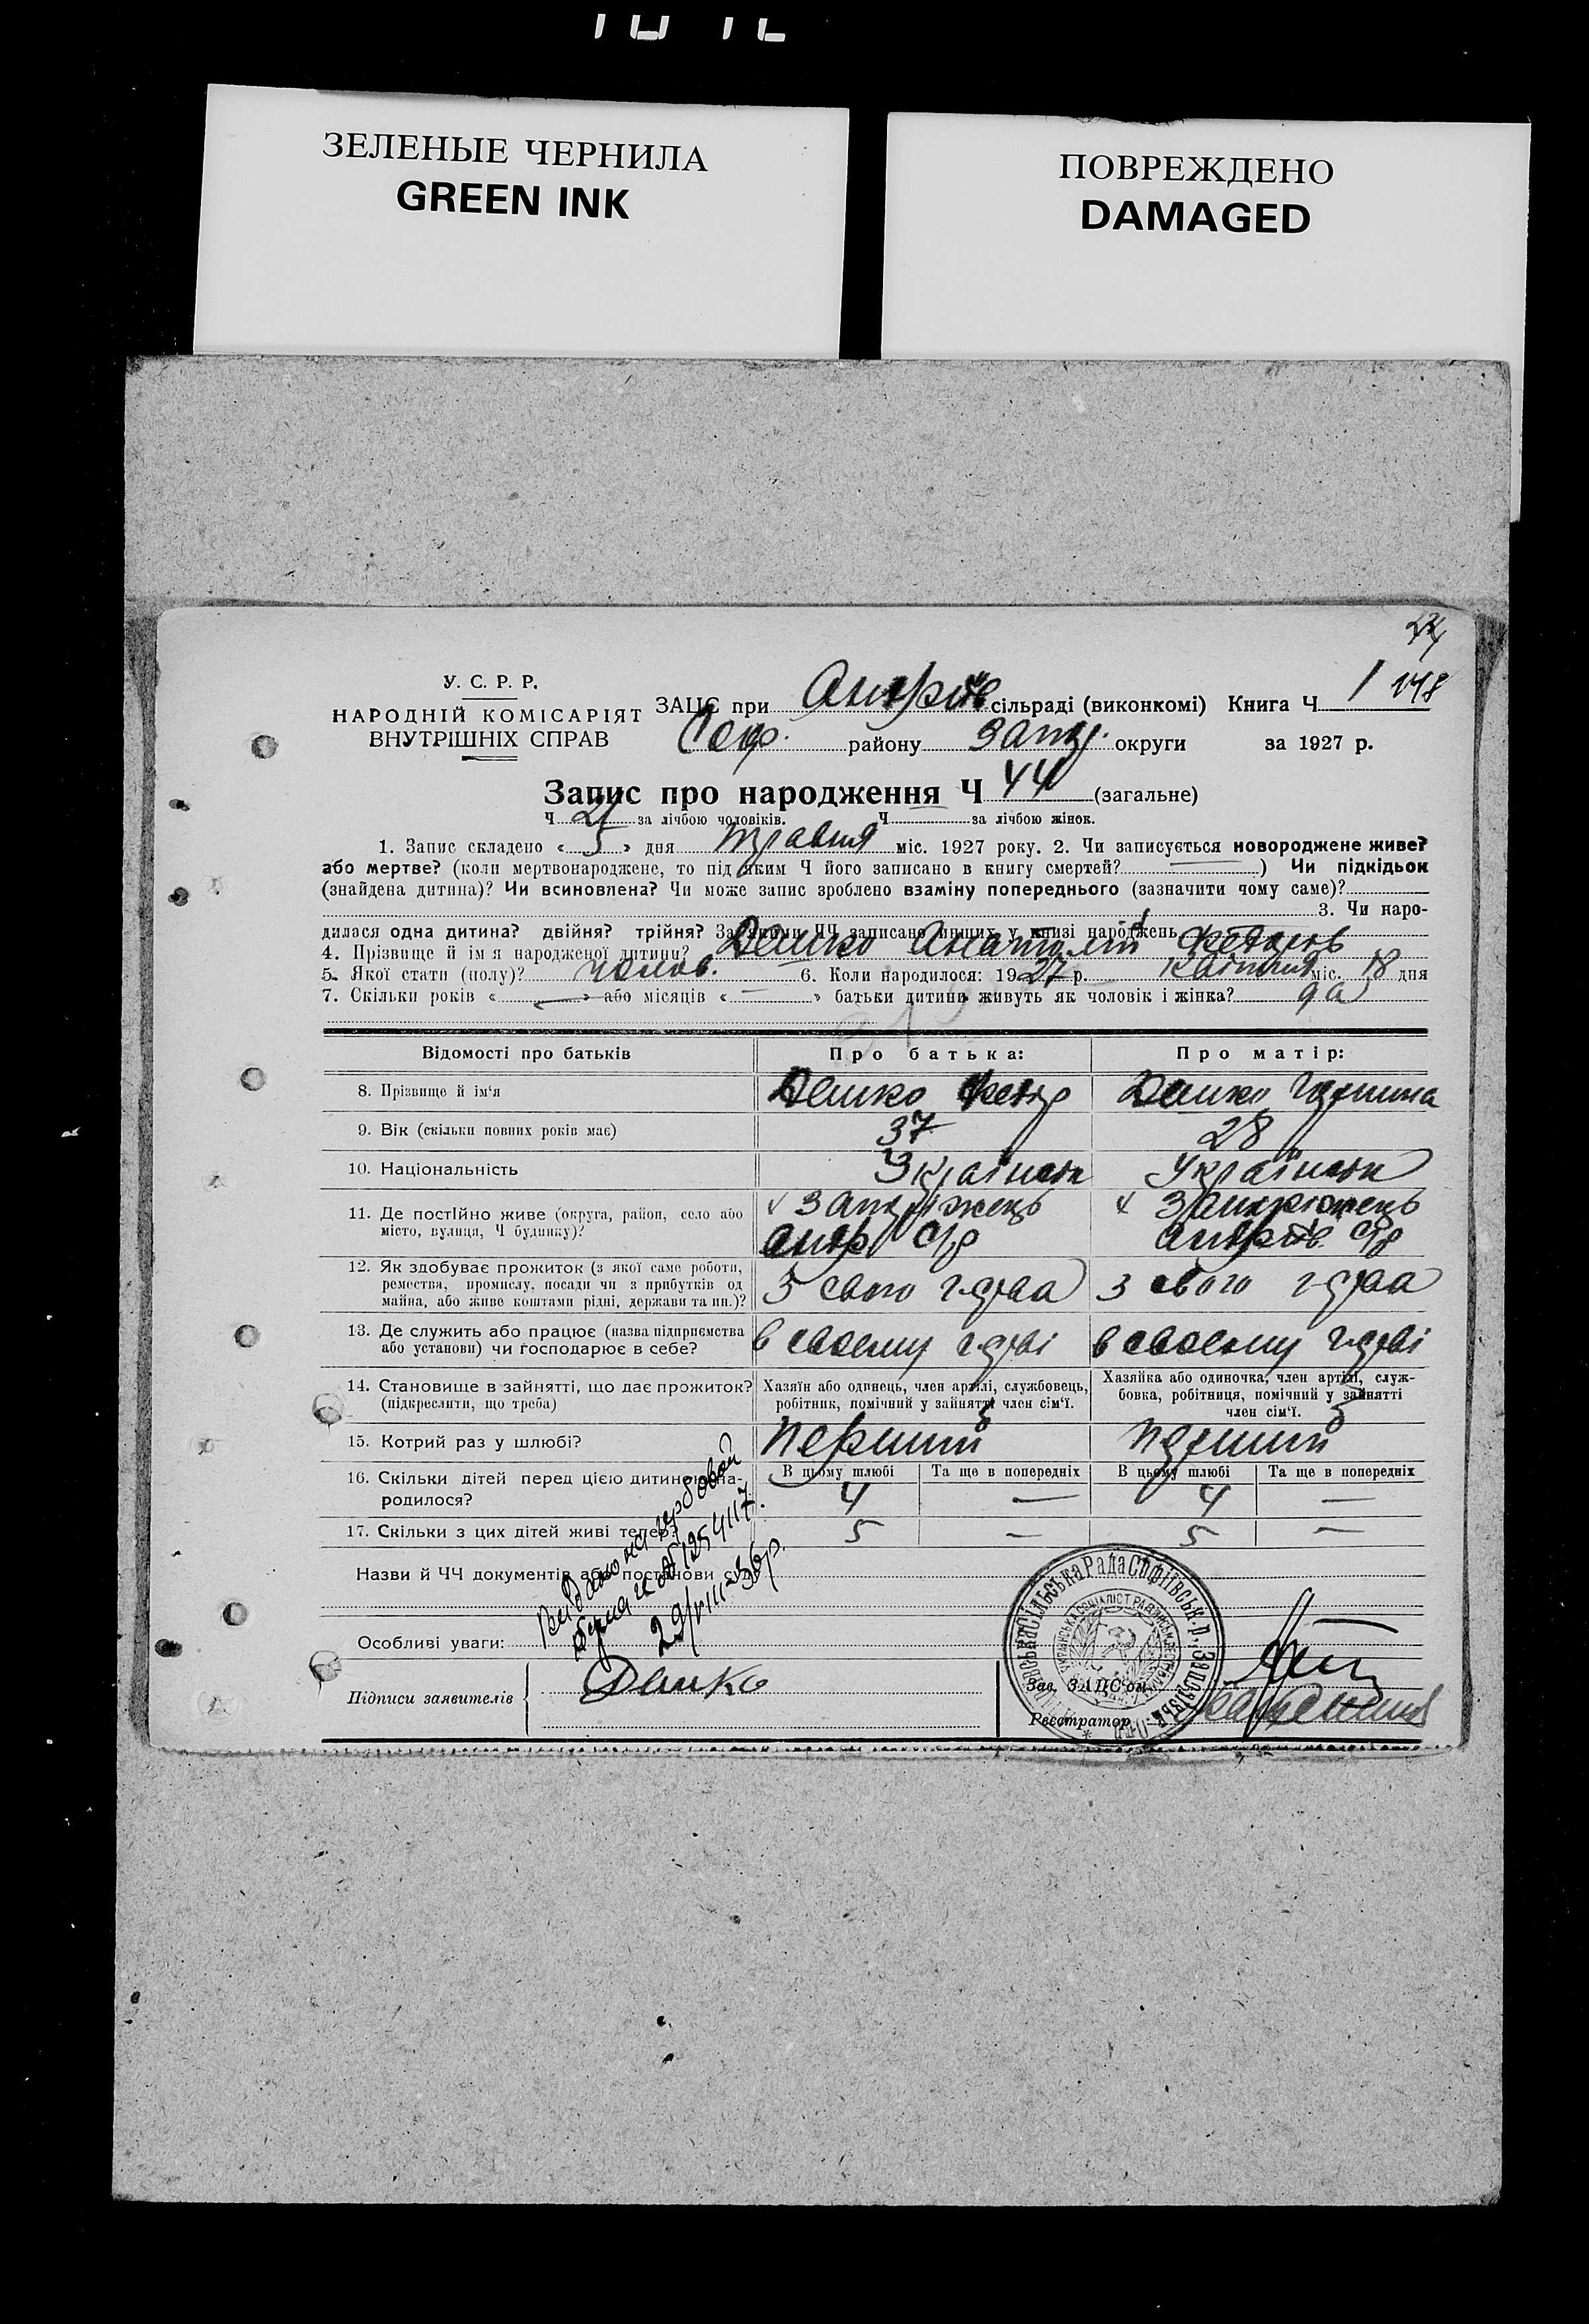 ЗЕЛЕНЫЕ ЧЕРНИЛА
GREEN INK
ПОВРЕЖДЕНО
DAMAGED
У. С. Р. Р.
НАРОДНІЙ КОМІСАРІЯТ
ВНУТРІШНІХ СПРАВ
ЗАЦС при сільраді (виконкомі) Книга Ч 1 148
Соф. району Запор. округи за 1927 р.
Запис про народження Ч 44 (загальне)
Ч 21 за лічбою чоловіків. Ч за лічбою жінок.
1. Запис складено « 5 » дня травня міс. 1927 року. 2. Чи записується новороджене живе?
або мертве? (коли мертвонароджене, то під яким Ч його записано в книгу смертей? ) Чи підкідьок
(знайдена дитина)? Чи всиновлена? Чи може запис зроблено взаміну попереднього (зазначити чому саме)?
3. Чи наро-
дилася одна дитина? двійня? трійня? За якими ЧЧ записано инших у книзі народжень
4. Прізвище й ім'я народженої дитини? Демко Анатолій Федоров
5. Якої стати (полу)? чолов. 6. Коли народилося: 1927 р. квітня міс. 18 дня
7. Скільки років « » або місяців « — » батьки дитини живуть як чоловік і жінка? да
Відомості про батьків
Про батька:
Про матір:
8. Прізвище й ім'я Демко Федір Демко
9. Вік (скільки повних років має) 37 28
10. Національність Українець Українка
11. Де постійно живе (округа, район, село або
місто, вулиця, Ч будинку)?
12. Як здобуває прожиток (з якої саме роботи,
ремества, промислу, посади чи з прибутків од
майна, або живе коштами рідні, держави та ин.)?
З свого г-дства з свого г-дства
13. Де служить або працює (назва підприємства
або установи) чи господарює в себе?
в своєму г-дстві в своєму г-дстві
14. Становище в зайнятті, що дає прожиток?
(підкреслити, що треба)
Хазяїн або одинець, член артілі, службовець,
робітник, помічний у зайнятті член сім'ї.
Хазяйка або одиночка, член артілі, служ-
бовка, робітниця, помічний у зайнятті
член сім'ї.
15. Котрий раз у шлюбі? Перший перший
16. Скільки дітей перед цією дитиною на-
родилося?
В цьому шлюбі Та ще в попередніх В цьому шлюбі Та ще в попередніх
4 — 4 —
17. Скільки з цих дітей живі тепер? 5 — 5 —
Назви й ЧЧ документів або постанови суду
Видано на гербовой
бумаги № 1254117.
29/VIII-36р.
Особливі уваги:
Підписи заявителів Демко
Зав. ЗАЦС'ом
Реєстратор